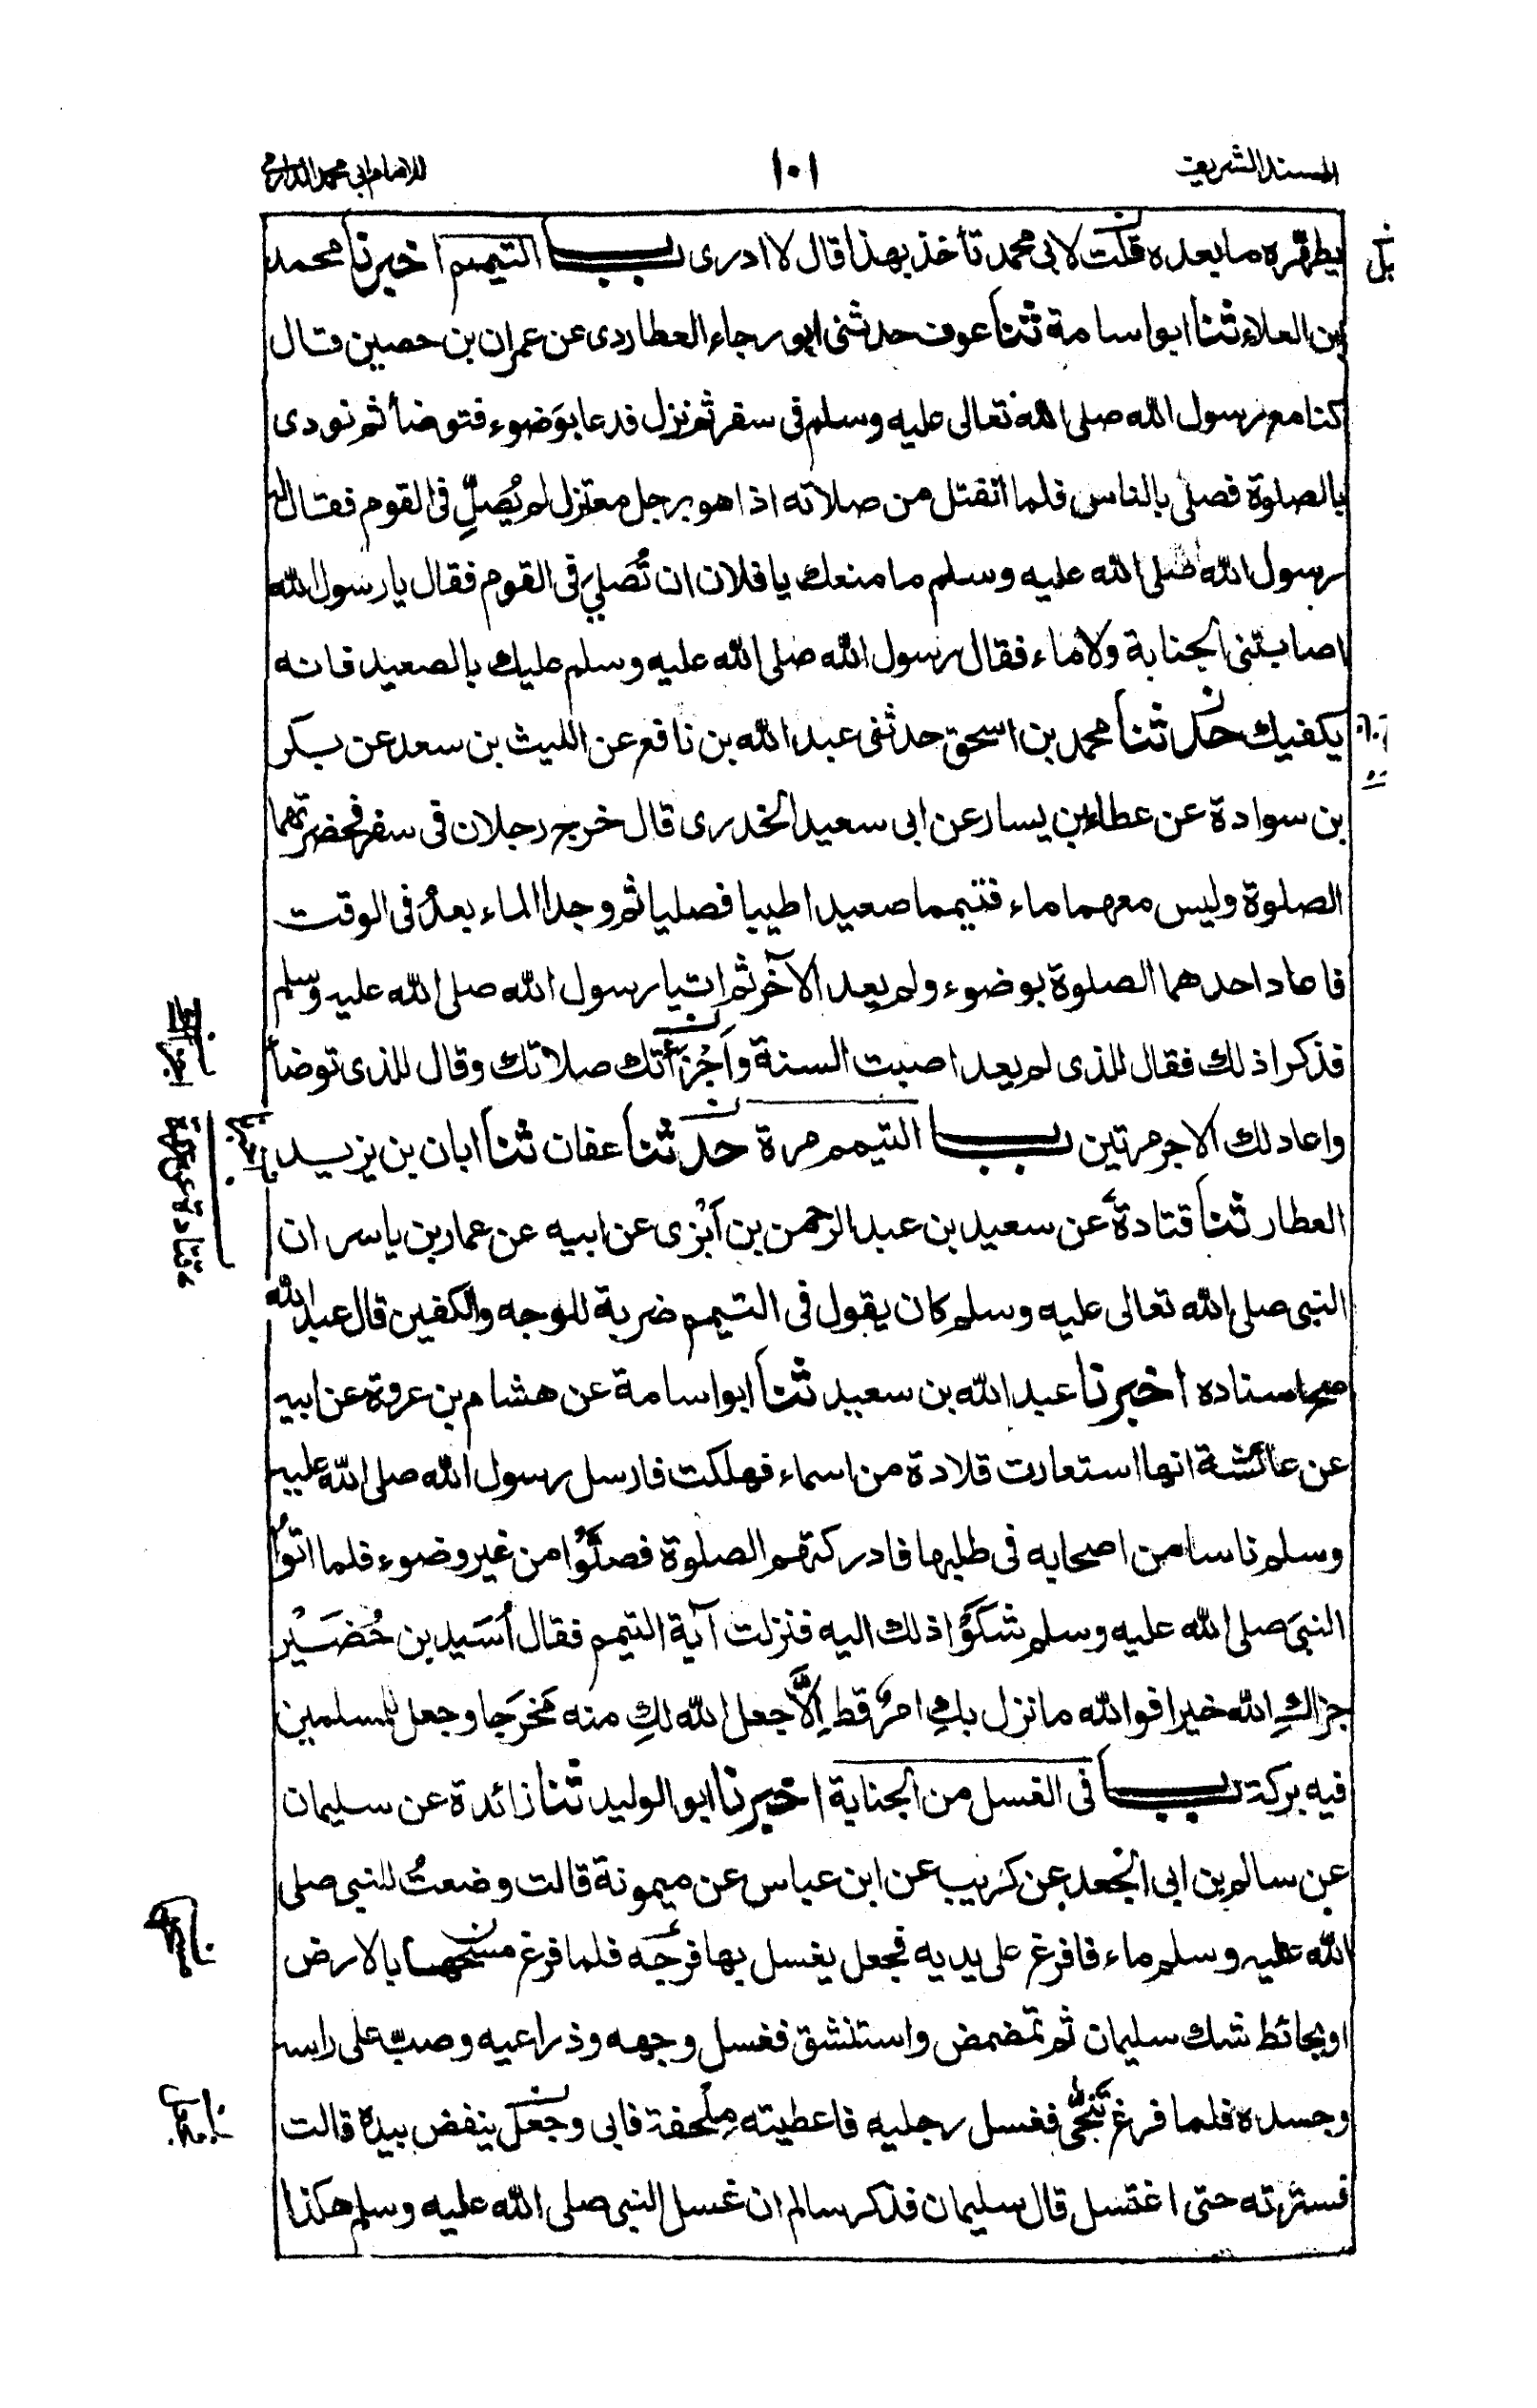 المسند الشريف
١٠١
للامام ابي محمد الدارمي
يطهّره ما بعده قلت لابي محمد تأخذ بهذا قال لا ادرى باب التيمم اخبرنا محمد
ابن العلاء ثنا ابو اسامة ثنا عوف حدثنى ابو رجاء العطاردى عن عمران بن حصين قال
كنا مع رسول الله صلى الله تعالى عليه وسلم فى سفر ثم نزل فدعا بوَضوء فتوضأ ثم نودى
بالصلوة فصلى بالناس فلما انفتل من صلاته اذا هو برجل معتزل لم يُصَلِّ فى القوم فقال له
رسول الله صلى الله عليه وسلم ما منعك يا فلان ان تُصَلِيَ فى القوم فقال يا رسول الله
اصابتنى الجنابة ولا ماء فقال رسول الله صلى الله عليه وسلم عليك بالصعيد فانه
يكفيك حدثنا محمد بن اسحق حدثنى عبد الله بن نافع عن الليث بن سعد عن بكر
بن سوادة عن عطاء بن يسار عن ابى سعيد الخدرى قال خرج رجلان فى سفر فحضرتهما
الصلوة وليس معهما ماء فتيمما صعيدا طيبا فصليا ثم وجدا الماء بعدُ فى الوقت
فاعاد احدهما الصلوة بوضوء ولم يعد الآخر ثم اتيا رسول الله صلى الله عليه وسلم
فذكرا ذلك فقال للذى لم يعد اصبت السنة وأَجْزَأتك صلاتك وقال للذى توضأ
واعاد لك الاجر مرتين باب التيمم مرة حدثنا عفان ثنا ابان بن يزيد
العطار ثنا قتادة عن سعيد بن عبد الرحمن بن أَبْزى عن ابيه عن عمار بن ياسر ان
النبى صلى الله تعالى عليه وسلم كان يقول فى التيمم ضربة للوجه والكفين قال عبد الله
صح اسناده اخبرنا عبد الله بن سعيد ثنا ابو اسامة عن هشام بن عروة عن ابيه
عن عائشة انها استعارت قلادة من اسماء فهلكت فارسل رسول الله صلى الله عليه
وسلم ناسا من اصحابه فى طلبها فادركتهم الصلوة فصلَّوْا من غير وضوء فلما اتوُا
النبىَ صلى الله عليه وسلم شكَوْا ذلك اليه فنزلت آية التيمم فقال اُسَيد بن حُضَيْر
جزاكِ الله خيرا فوالله ما نزل بكِ امرٌ قط اِلَّا جعل الله لكِ منه مَخرَجا وجعل للمسلمين
فيه بركة باب فى الغسل من الجنابة اخبرنا ابو الوليد ثنا زائدة عن سليمان
عن سالم بن ابى الجعد عن كريب عن ابن عباس عن ميمونة قالت وضعتُ للنبى صلى
الله عليه وسلم ماء فافرغ على يديه فجعل يغسل بها فرجَه فلما فرغ مسحها بالارض
او بحائط شك سليمان ثم تمضمض واستنشق فغسل وجهه وذراعيه وصبّ على راسه
وجسده فلما فرغ تَنَحّٰى فغسل رجليه فاعطيته مِلحفة فابى وجعل ينفض بيده قالت
فسترته حتى اغتسل قال سليمان فذكر سالم ان غسل النبى صلى الله عليه وسلم هكذا
قتادة عن عزرة